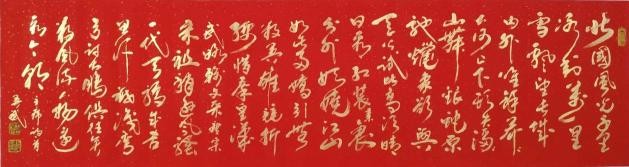 北国风光千里
冰封万里
雪飘望长城
内外惟馀莽莽
大河上下顿失滔滔
山舞银蛇原
驰蜡象欲与
天公试比高须晴
日看红装素裹
分外妖娆江山
如此多娇引无
数英雄竞折
腰惜秦皇汉
武略输文采唐宗
宋祖稍逊风骚
一代天骄成吉
思汗只识弯
弓射大雕俱往矣
数风流人物还
看今朝